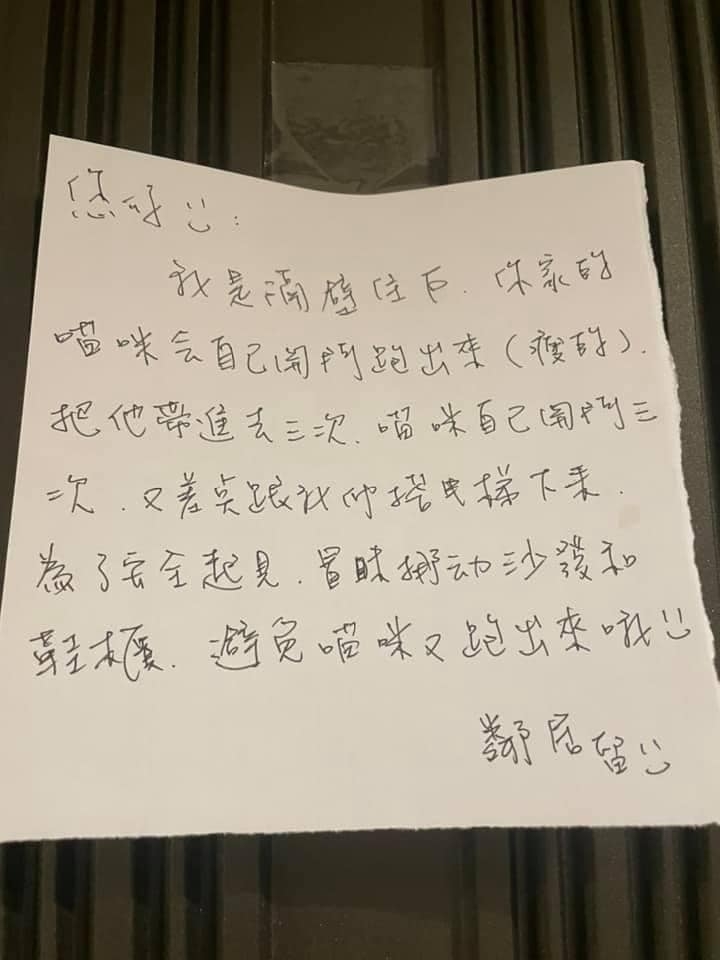 您好 :) :
我是隔壁住戶. 你家的
喵咪会自己開門跑出來(瘦的).
把他帶進去三次. 喵咪自己開門三
次. 又差点跟我们搭电梯下來.
為了安全起見. 冒昧挪动沙發和
鞋櫃. 避免喵咪又跑出來哦 :)
鄰居留 :)